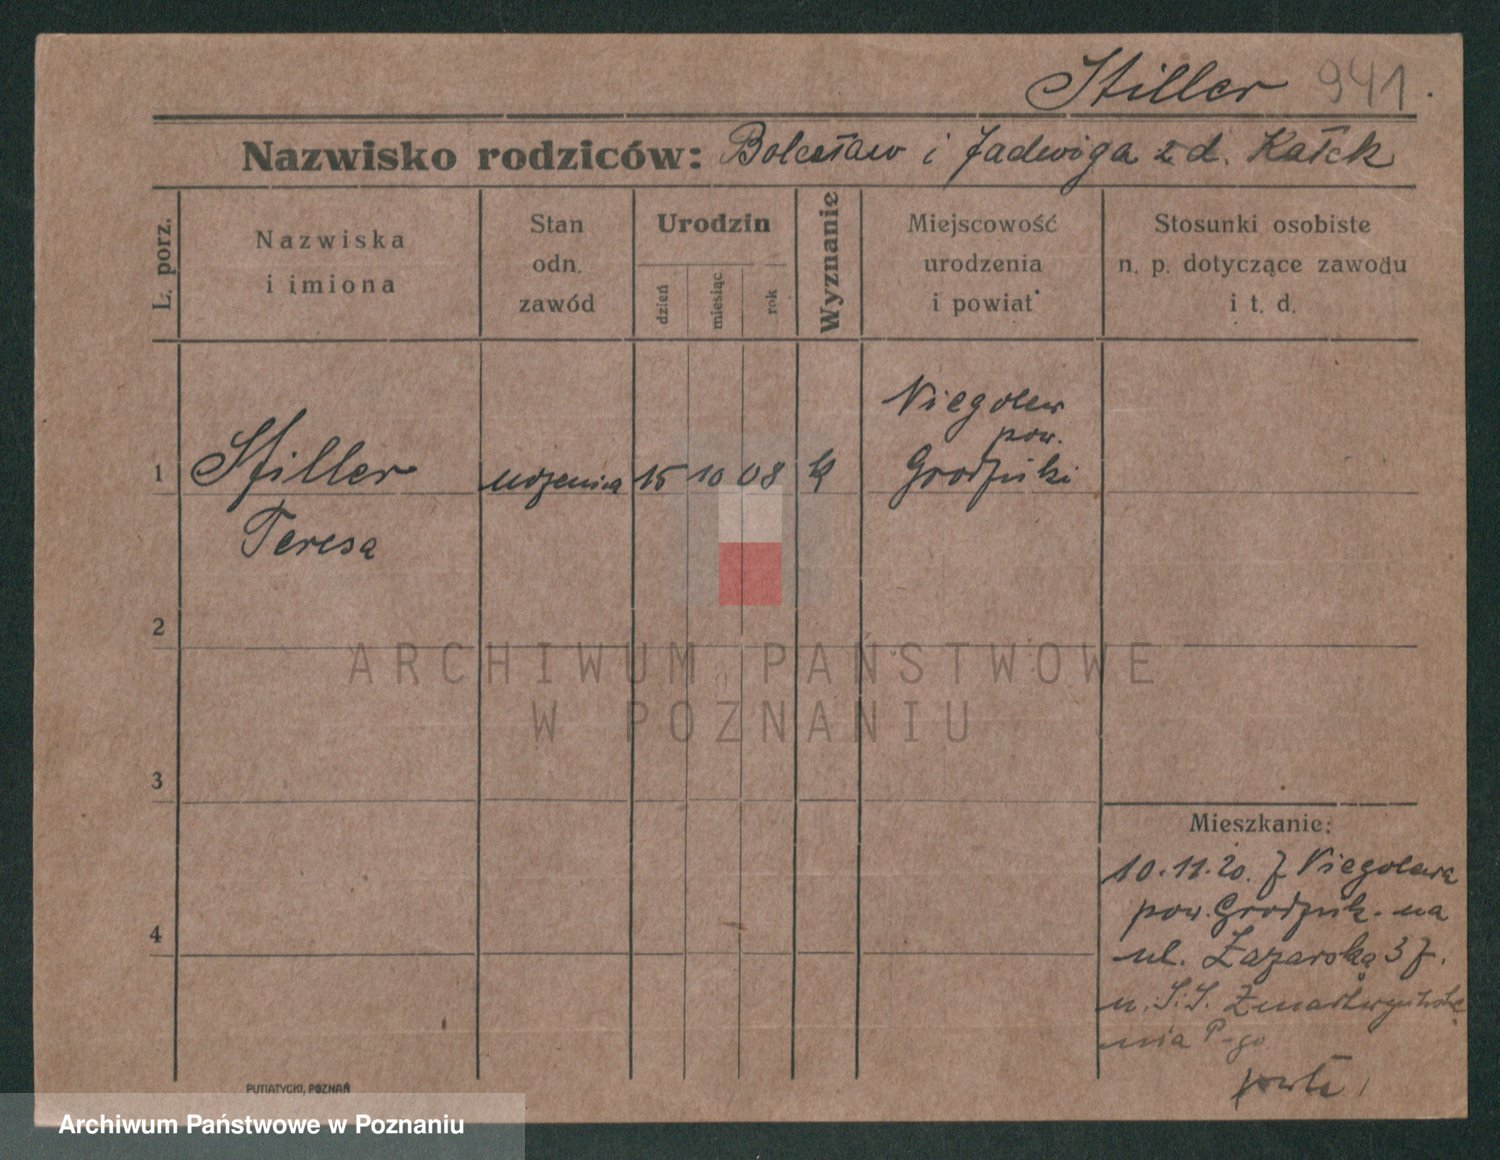 Stiller 941.
Nazwisko rodziców: Bolesław i Jadwiga z d. Kałek
L. porz.
Nazwiska
i imiona
Stan
odn.
zawód
Urodzin
dzień
miesiąc
rok
Wyznanie
Miejscowość
urodzenia
i powiat
Stosunki osobiste
n. p. dotyczące zawodu
i t. d.
1 Stiller uczenica 15 10 08 Niegolew
pow.
Grodziski
Teresa
2
3
4
Mieszkanie:
10.11.20. z Niegolewa
pow. Grodzisk. na
ul. Łazarska 3 z.
u. S.S. Zmartwychwsta
nia P-go
PUTIATYCKI, POZNAŃ
ARCHIWUM PAŃSTWOWE
W POZNANIU
Archiwum Państwowe w Poznaniu